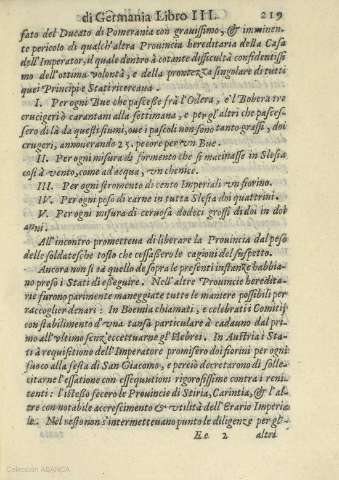 di Germania Libro III. 219
fato del Ducato di Pomerania con grauissimo, & imminen-
te pericolo di qualch'altra Prouincia hereditaria della Casa
dell'Imperator, il quale dentro à cotante difficultà confidentissi
mo dell'ottima volontà, e della prontezza singolare di tutti
quei Principi e Stati ricercaua.
I. Per ogni Bue che pascesse frà l'Odera, e'l Bobera tre
crucigeri ò carantani alla settimana, e per gl'altri che pasces-
sero di là da questi fiumi, oue i pascoli non sono tanto grassi, doi
crugeri, annouerando 25. pecore per vn Bue.
II. Per ogni misura di formento che si macinasse in Slesia
così à vento, come ad acqua, vn chenice.
III. Per ogni stromento di vento Imperiali vn fiorino.
IV. Per ogni peso di carne in tutta Slesia dui quattrini.
V. Per ogni misura di ceruosa dodeci grossi di doi in doi
anni.
All'incontro prometteua di liberare la Prouincia dal peso
delle soldatesche tosto che cessassero le cagioni del suspetto.
Ancora non si sa quello de sopra le presenti instanze habbia-
no preso i Stati di esseguire. Nell'altre Prouincie heredita-
rie furono parimente maneggiate tutte le maniere possibili per
raccoglier denari: In Boemia chiamati, e celebrati i Comitij
con stabilimento d'vna tansa particulare à cadauno dal pri-
mo all'vltimo senz'eccettuarne gl'Hebrei. In Austria i Sta-
ti à requisitione dell'Imperatore promisero doi fiorini per ogni
fuoco alla festa di San Giacomo, e perciò decretarono di solle-
uitarne l'essatione con essequutioni rigorosissime contra i reni-
tenti: l'istesso fecero le Prouincie di Stiria, Carintia, & l'al-
tre con notabile accrescimento & vtilità dell'Erario Imperia-
le. Nel resto non s'intermetteuano punto le diligenze per gl'-
Ee 2 altri
Colección ABANCA